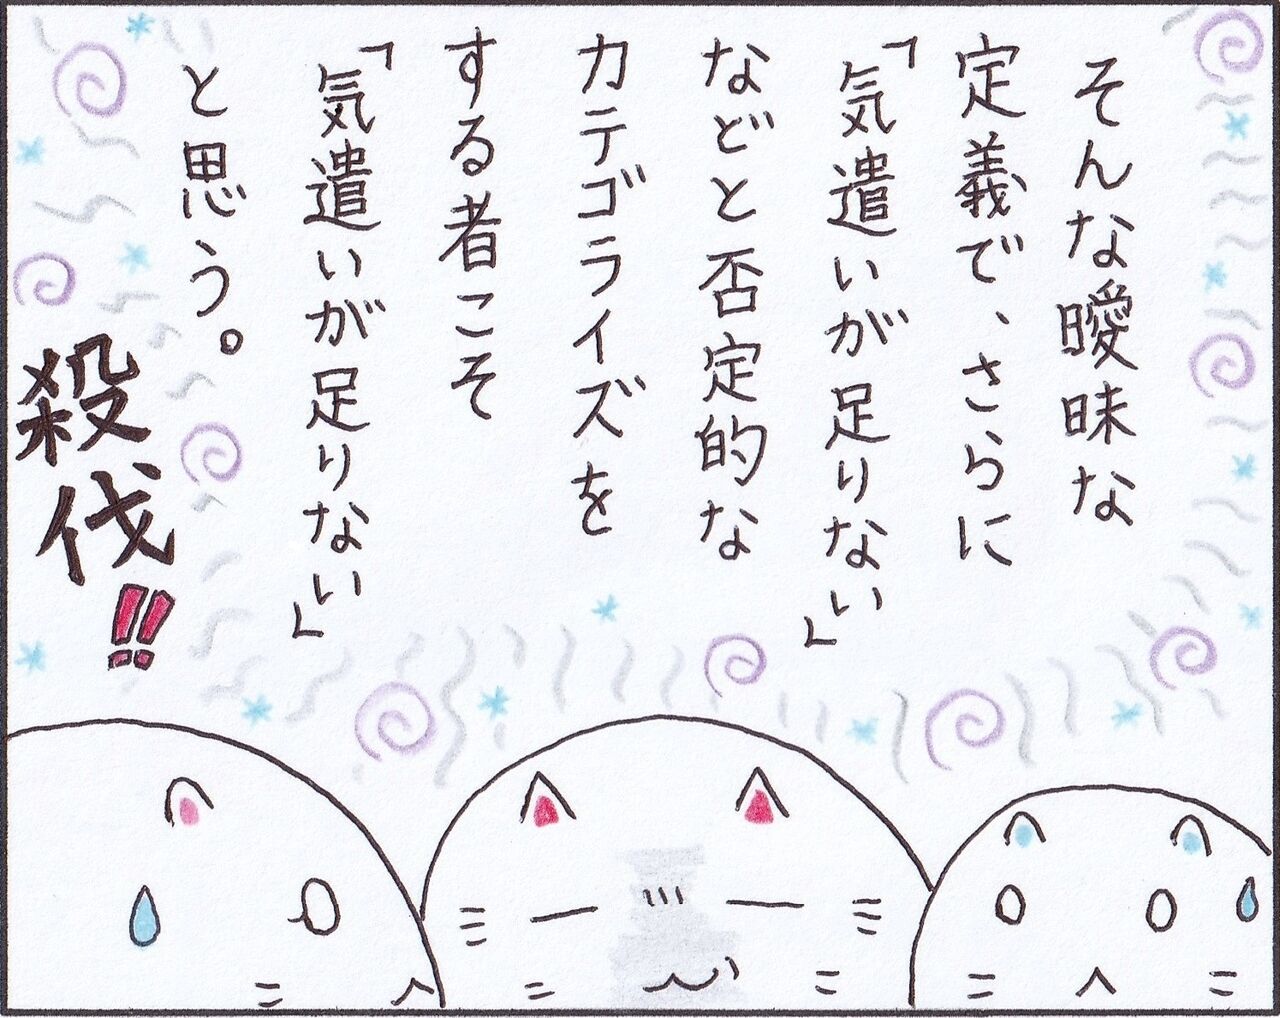 そんな曖昧な
定義で、さらに
「気遣いが足りない」
などと否定的な
カテゴライズを
する者こそ
「気遣いが足りない」
と思う。
殺伐!!